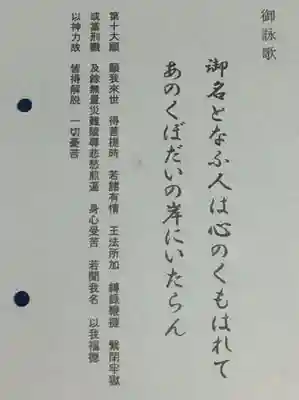 御詠歌
御名となふ人は心のくもはれて
あのくぼだいの岸にいたらん
第十大願 願我來世 得菩提時 若諸有情 王法所加 縛錄鞭撻 繫閉牢獄
或當刑戮 及餘無量災難陵辱悲愁煎逼 身心受苦 若聞我名 以我福德
以神力故 皆得解脱 一切憂苦